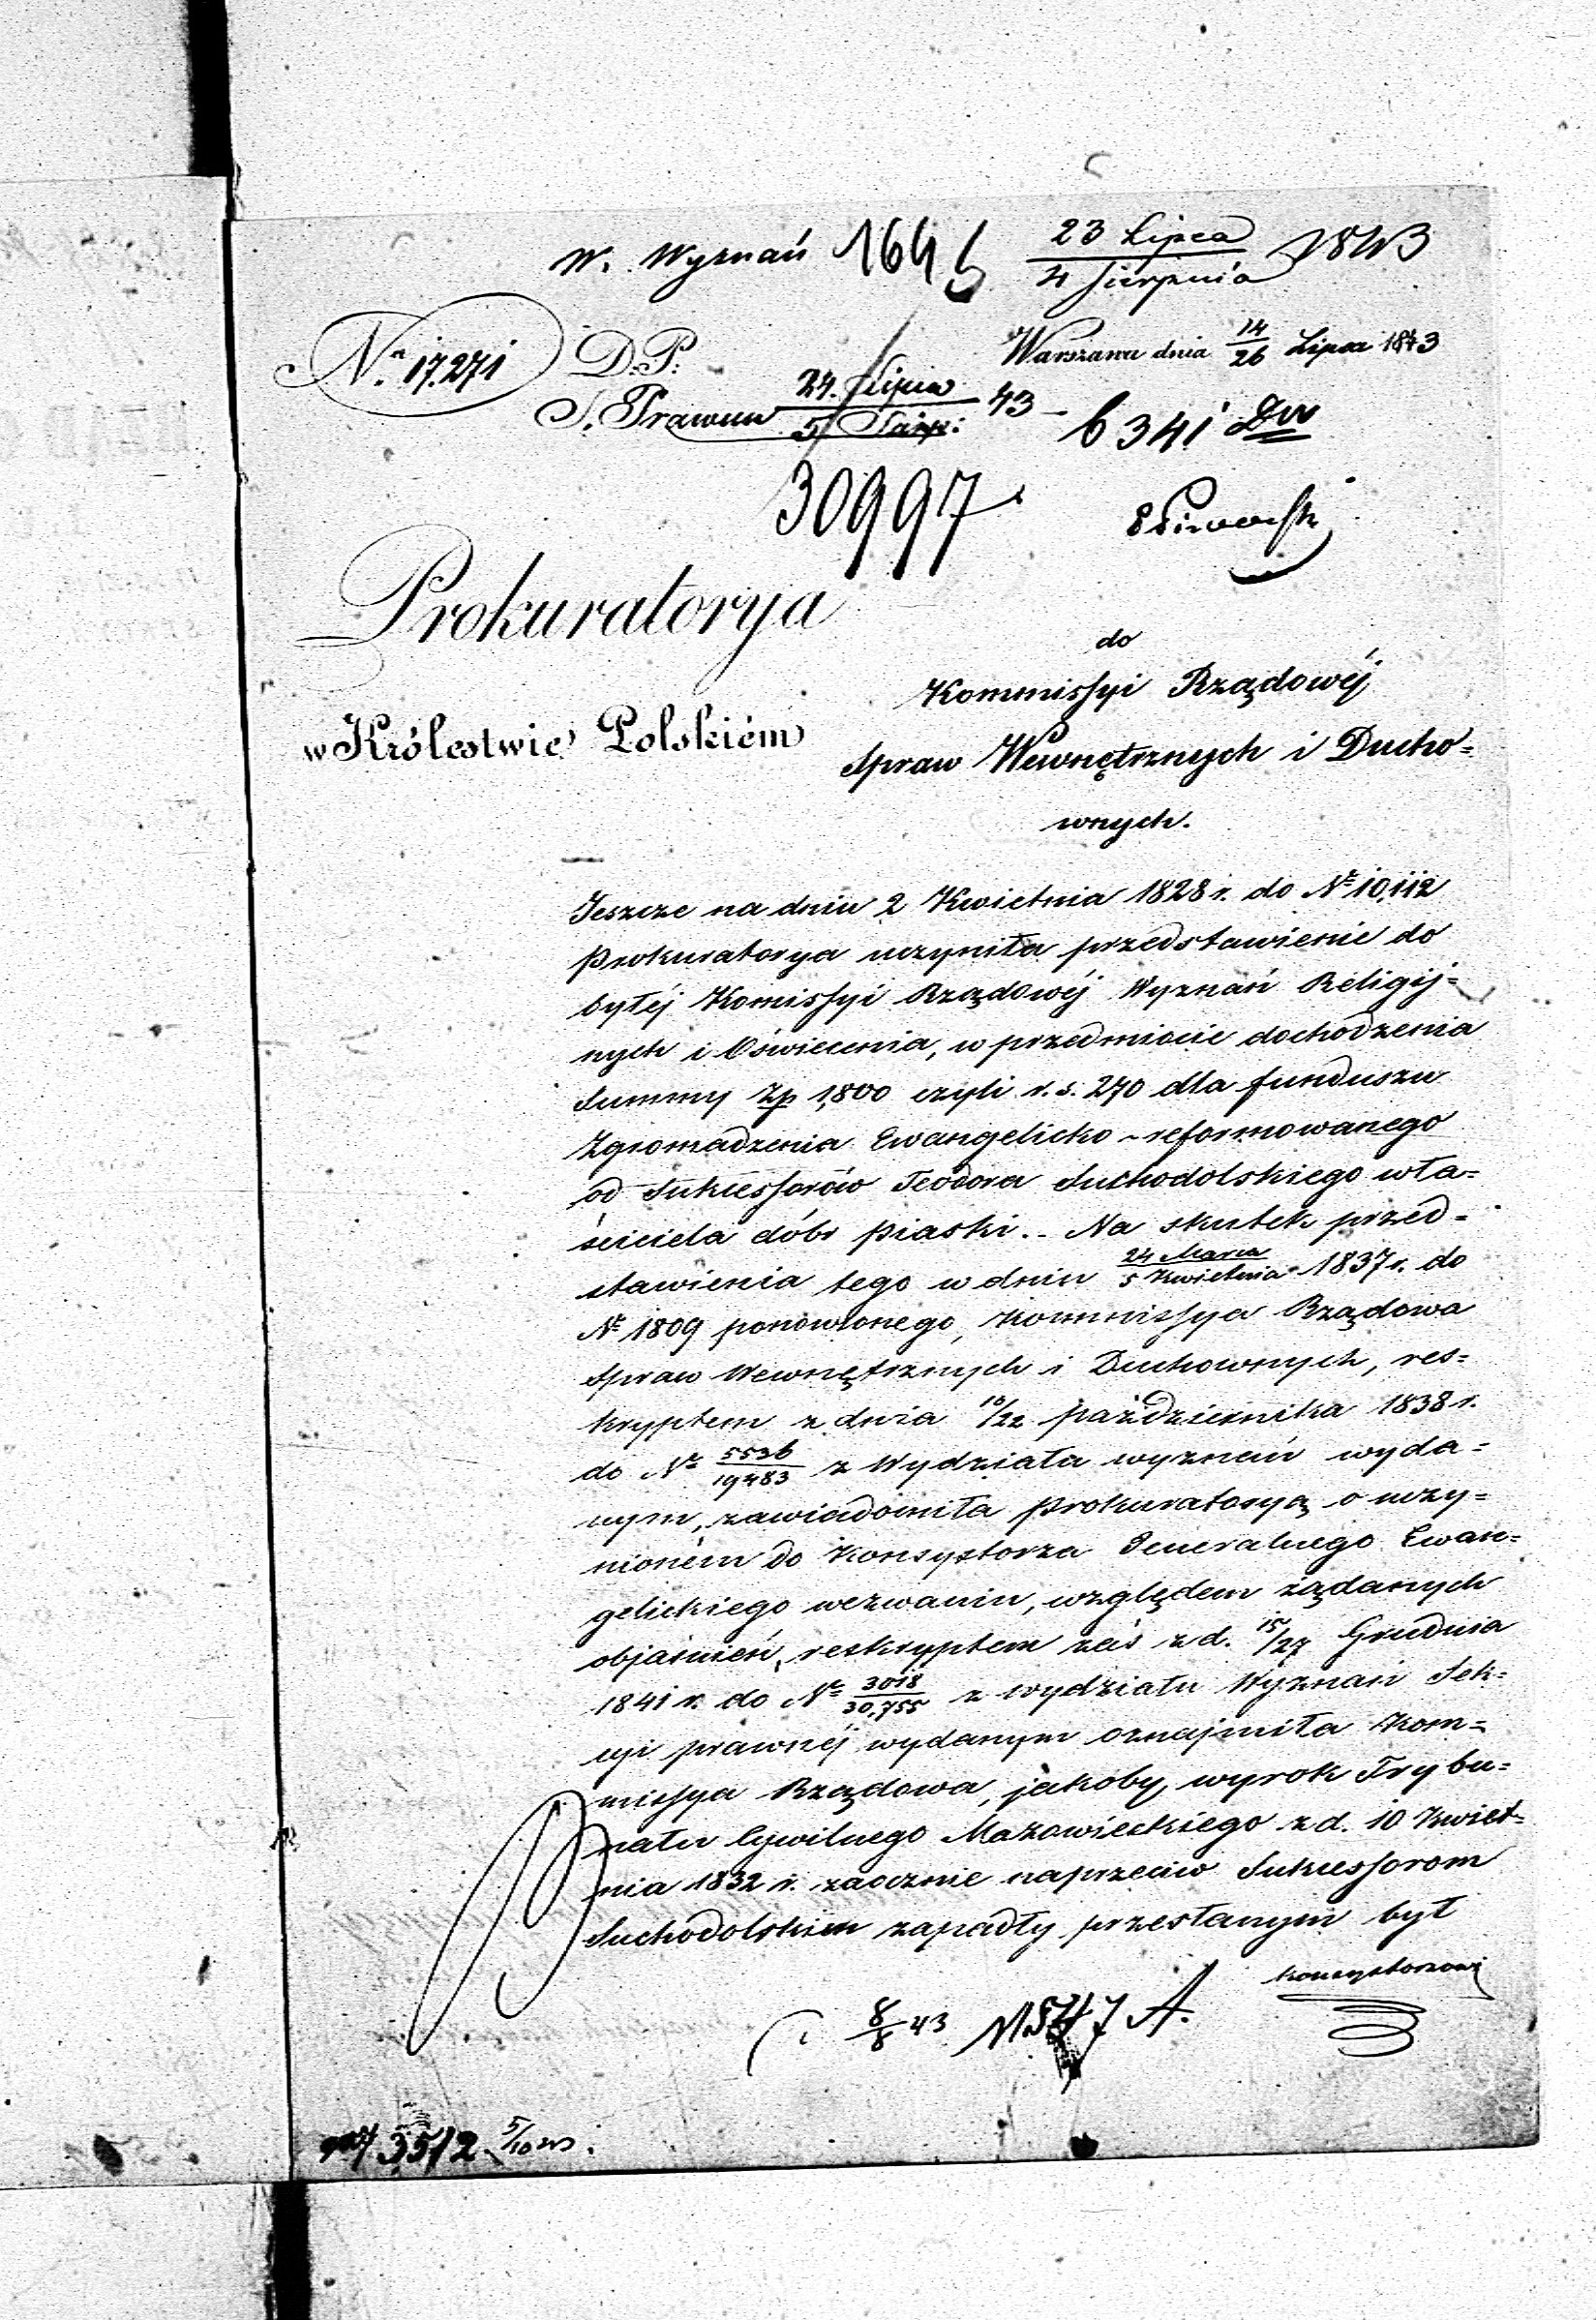 W. Wyznań 1645 23 Lipca / 4 Sierpnia 1843
Nro. 17.271 D. P. Warszawa dnia 14/26 Lipca 1843
S. Prawna 24. Lipca / 5 Sierp: 43 — 6341
30997
Prokuratorya
do
w Królestwie Polskiém
Kommissyi Rządowéj
Spraw Wewnętrznych i Ducho=
wnych.
Jeszcze na dniu 2 Kwietnia 1828 r. do № 10,112
Prokuratorya uczyniła przedstawienie do
byłéj Komissyi Rządowéj Wyznań Religij=
nych i Oświecenia, w przedmiocie dochodzenia
Summy Zp 1,800 czyli r. s. 270 dla funduszu
Zgromadzenia Ewangelicko-reformowanego
od Sukcessorów Teodora Suchodolskiego wła=
ściciela dóbr Piaski. - Na skutek przed=
stawienia tego w dniu 24 Marca / 5 Kwietnia 1837 r. do
№ 1809 ponowionego, Kommissya Rządowa
Spraw Wewnętrznych i Duchownych, res=
kryptem z dnia 10/22 października 1838 r.
do № 5536/19483 z Wydziału wyznań wyda=
nym, zawiadomiła Prokuratoryą o uczy=
nioném do Konsystorza Generalnego Ewan=
gelickiego wezwaniu, względem żądanych
objaśnień, reskryptem zaś z d. 15/27 Grudnia
1841 r. do № 3018/30,755 z wydziału Wyznań Sek=
cyi prawnéj wydanym oznajmiła Kom=
missya Rządowa, jakoby wyrok Trybu=
nału Cywilnego Mazowieckiego z d. 10 Kwiet=
nia 1832 r. zaocznie naprzeciw Sukcessorom
Suchodolskim zapadły przesłanym był
konsystorzowi
8/8 43
3512 5/10